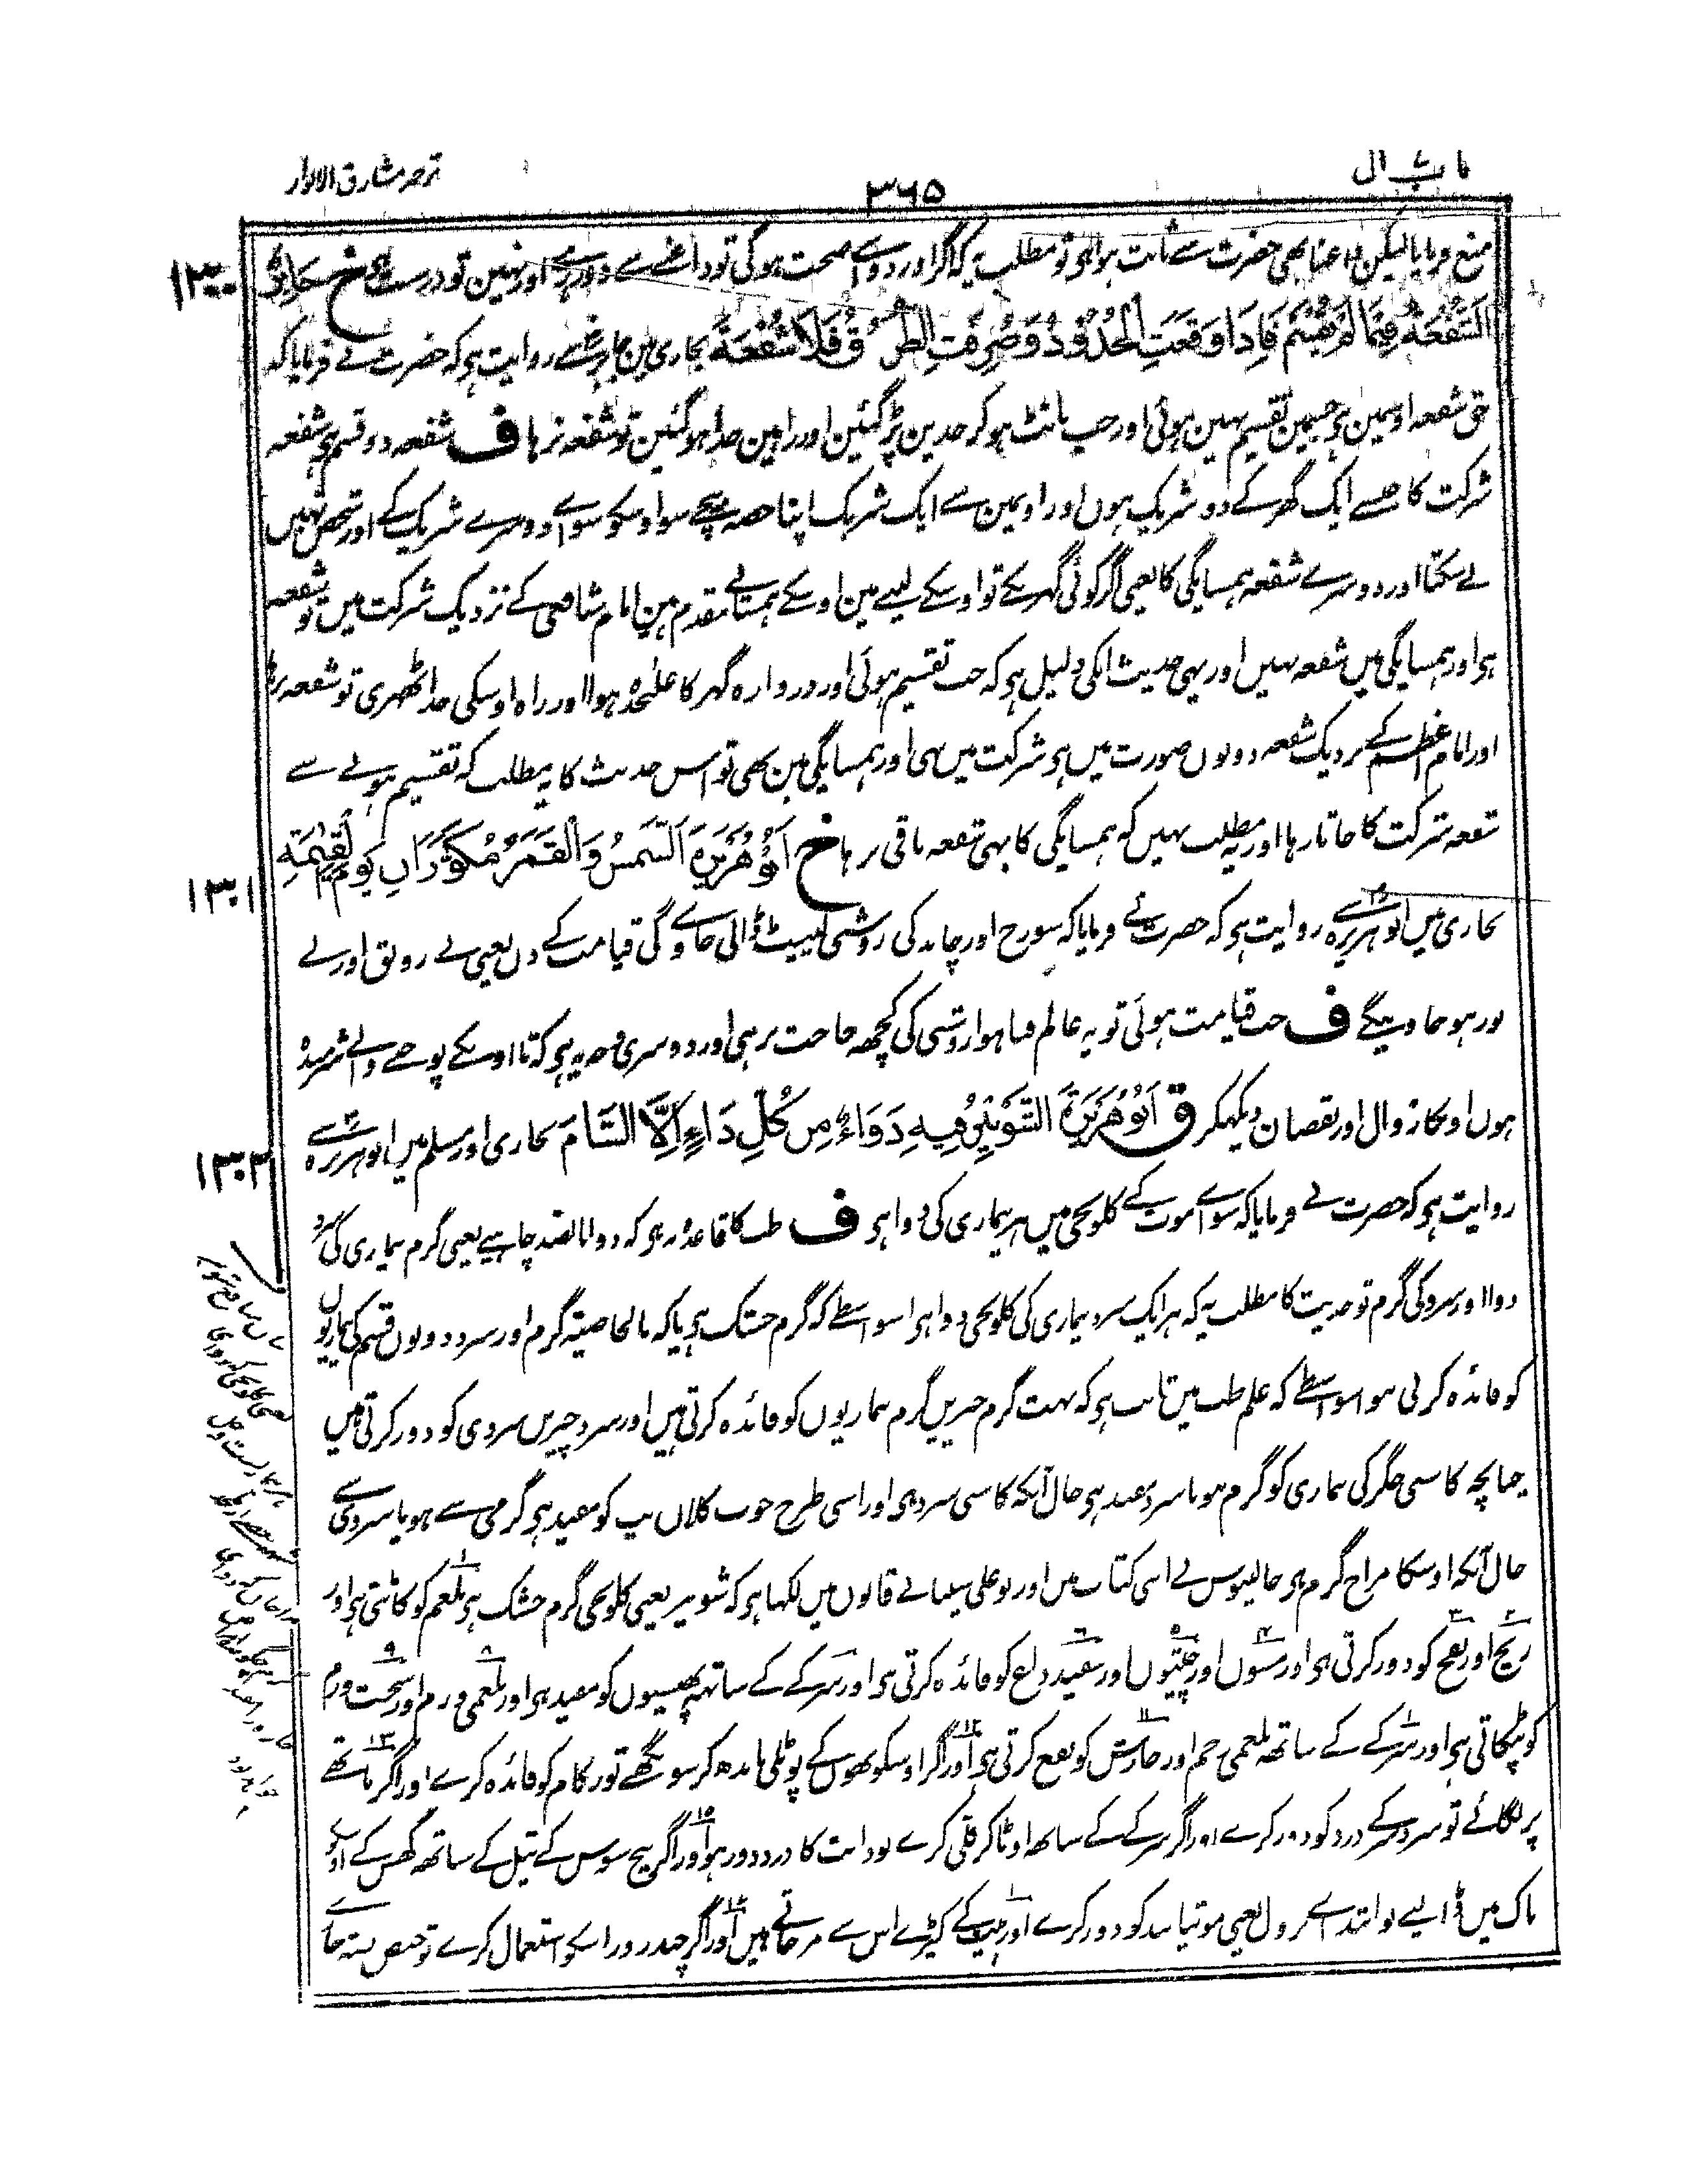 باب ال
۳۶۵
ترجمہ مشارق الانوار
منع فرمایا لیکن داغنا بھی حضرت سے ثابت ہوا ہی تو مطلب یہ کہ اگر اور دوا سے صحت ہوگی تو داغنے سے دور رہے اور نہین تو درست ہی خ جَابِرٌ
۱۳۰۰
الشُّفْعَةُ فِيمَا لَمْ يُقْسَمْ فَاِذَا وَقَعَتِ الْحُدُوْدُ وَصُرِفَتِ الطُّرُقُ فَلَا شُفْعَةَ بخاری مین جابر سے روایت ہی کہ حضرت نے فرمایا کہ
حق شفعہ اوسمین ہی جسمین تقسیم نہین ہوئی اور جب بانٹ ہو کر حدین پڑ گئین اور راہین جدا ہو گئین تو شفعہ نرہا ف شفعہ دو قسم ہی شفعہ
شرکت کا جیسے ایک گھر کے دو شریک ہوں اور اونمین سے ایک شریک اپنا حصہ بیچے سو اوسکو سواے دوسرے شریک کے اور شخص نہیں
لے سکتا اور دوسرے شفعہ ہمسایگی کا یعنی اگر کوئی گھر بیچے تو اوسکے لینے مین اوسکے ہمسائے مقدم ہین امام شافعی کے نزدیک شرکت میں تو شفعہ
ہی اور ہمسایگی میں شفعہ نہیں اور یہی حدیث انکی دلیل ہی کہ جب تقسیم ہوئی اور دروازہ گھر کا علٰحدہ ہوا اور راہ اوسکی جدا ٹھری تو شفعہ نرہا
اور امام اعظم کے نزدیک شفعہ دونوں صورت میں ہی شرکت میں بھی اور ہمسایگی مین بھی تو اس حدیث کا یہ مطلب کہ تقسیم ہونے سے
شفعہ شرکت کا جاتا رہا اور یہ مطلب نہیں کہ ہمسایگی کا بھی شفعہ باقی نرہا خ اَبُوْ هُرَيْرَةَ اَلشَّمْسُ وَالْقَمَرُ مُكَوَّرَانِ يَوْمَ الْقِيٰمَةِ
۱۳۰۱
بخاری میں ابو ہریرہ سے روایت ہی کہ حضرت نے فرمایا کہ سورج اور چاند کی روشنی لپیٹ ڈالی جاوے گی قیامت کے دن یعنی بے رونق اور بے
نور ہو جاوینگے ف جب قیامت ہوئی تو یہ عالم فنا ہوا روشنی کی کچھ حاجت نرہی اور دوسری وجہ یہ ہی کہ تا اونکے پوجنے والے شرمندہ
ہوں اونکا زوال اور نقصان دیکھکر ق اَبُوْ هُرَيْرَةَ الشُّوْنِيْزُ فِيْهِ دَوَاءٌ مِنْ كُلِّ دَاءٍ اِلَّا السَّامَ بخاری اور مسلم میں ابو ہریرہ سے
۱۳۰۲
روایت ہی کہ حضرت نے فرمایا کہ سواے موت کے کلونجی میں ہر بیماری کی دوا ہی ف طب کا قاعدہ یہ ہی کہ دوا بالضد چاہیے یعنی گرم بیماری کی سرد
دوا اور سرد کی گرم تو حدیث کا مطلب یہ کہ ہر ایک سرد بیماری کی کلونجی دوا ہی اسواسطے کہ گرم خشک ہی یا کہ بالخاصیتہ گرم اور سرد دونوں قسم کی بیماریوں
کو فائدہ کرتی ہو اسواسطے کہ علم طب میں ثابت ہی کہ بہت گرم چیزیں گرم بیماریوں کو فائدہ کرتی ہیں اور سرد چیزیں سردی کو دور کرتی ہیں
چنانچہ کاسنی جگر کی بیماری کو گرم ہو یا سرد مفید ہی حال آنکہ کاسنی سرد ہی اور اسی طرح خوب کلاں تپ کو مفید ہی گرمی سے ہو یا سردی سے
حال آنکہ اوسکا مزاج گرم ہی جالینوس نے اسی کتاب میں اور بوعلی سینا نے قانون میں لکھا ہی کہ شونیز یعنی کلونجی گرم خشک ہی بلغم کو کاٹتی ہی اور
ریح اور نفخ کو دور کرتی ہی اور مسوں اور چھیپوں اور سفید داغ کو فائدہ کرتی ہی اور سرکے کے ساتھ پھنسیوں کو مفید ہی اور بلغمی ورم اور سخت ورم
کو ٹپکاتی ہی اور سرکے کے ساتھ بلغمی زخم اور خارش کو نفع کرتی ہی اور اگر اوسکو بھون کے پوٹلی باندھ کر سونگھے تو زکام کو فائدہ کرے اور اگر ماتھے
پر لگائے تو سرد سر کے درد کو دور کرے اور اگر سرکے کے ساتھ اوٹا کر کلی کرے تو دانت کا درد دور ہو اور اگر بیخ سوسن کے تیل کے ساتھ گھس کے اوسکو
ناک میں ڈالے تو ابتداے نزول یعنی موتیابند کو دور کرے اور پیٹ کے کیڑے اس سے مر جاتے ہیں اور اگر چند روز اسکو استعمال کرے تو حیض بستہ جاے